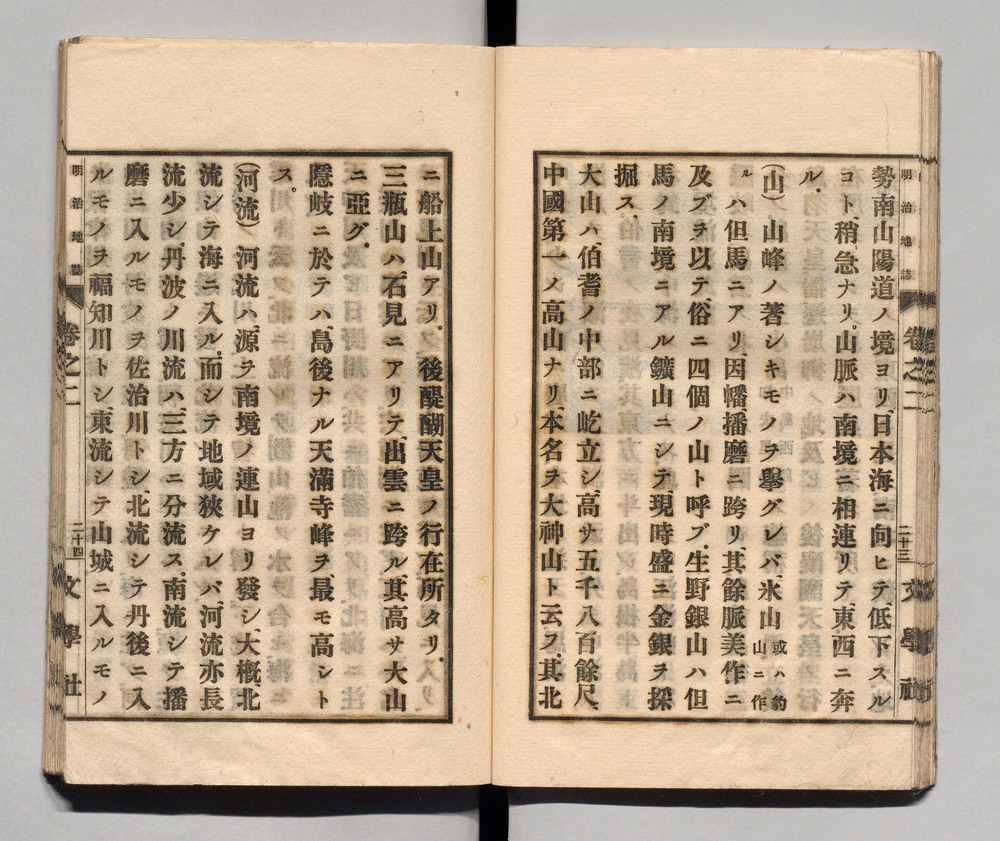 明治地誌 卷之二 二十三 文學社
勢南山陽道ノ境ヨリ、日本海ニ向ヒテ、低下スル
コト、稍、急ナリ。山脈ハ南境ニ相連リテ、東西ニ奔
ル。
(山)、山峰ノ著シキモノヲ擧グレバ、氷山或ハ豹山ニ作
ルハ但馬ニアリ、因幡、播磨ニ跨リ、其餘脈美作ニ
及ブヲ以テ、俗ニ四個ノ山ト呼ブ。生野銀山ハ但
馬ノ南境ニアル鑛山ニシテ、現時盛ニ金銀ヲ採
掘ス。
大山ハ、伯耆ノ中部ニ屹立シ、高サ五千八百餘尺、
中國第一ノ高山ナリ、本名ヲ大神山ト云フ。其北
ニ船上山アリ。後醍醐天皇ノ行在所タリ。
三瓶山ハ、石見ニアリテ、出雲ニ跨ル其高サ大山
ニ亞グ。
隱岐ニ於テハ、島後ナル天滿寺峰ヲ最モ高シト
ス。
(河流) 河流ハ、源ヲ南境ノ連山ヨリ發シ、大概、北
流シテ海ニ入ル。而シテ地域狹ケレバ、河流亦長
流少シ。丹波ノ川流ハ、三方ニ分流ス。南流シテ播
磨ニ入ルモノヲ佐治川トシ、北流シテ丹後ニ入
ルモノヲ福知川トシ、東流シテ山城ニ入ルモノ
明治地誌 卷之二 二十四 文學社